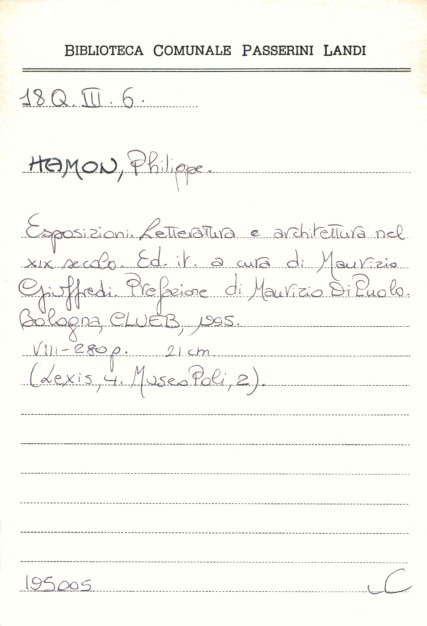 BIBLIOTECA COMUNALE PASSERINI LANDI
18Q. III. 6.
HAMON, Philippe.
Esposizioni. Letteratura e architettura nel
XIX secolo. Ed. it. a cura di Maurizio
Giuffredi. Prefazione di Maurizio Di Puolo.
Bologna, CLUEB, 1995.
VIII-280 p. 21 cm
(Lexis, 4. Museo Poli, 2).
195005